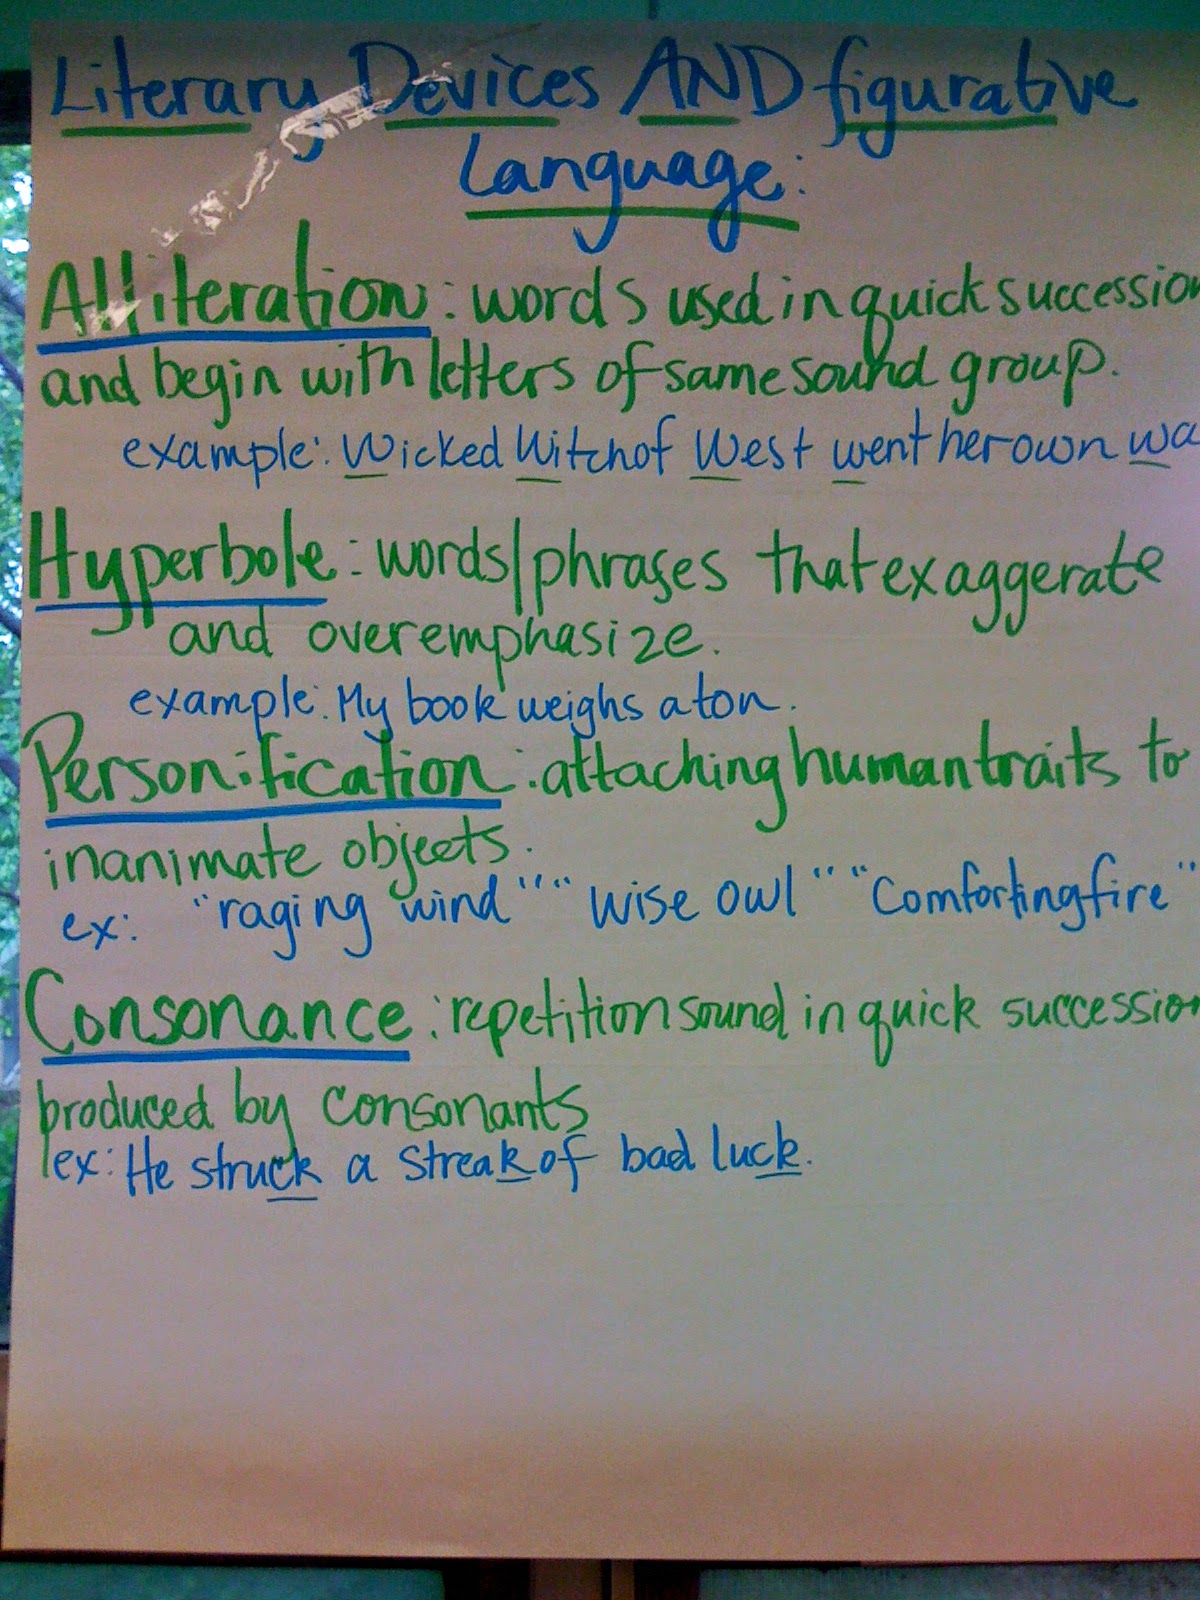 Literary Devices AND figurative
Language:
Alliteration: words used in quick succession
and begin with letters of same sound group.
example: Wicked Witch of West went her own wa
Hyperbole: words/phrases that exaggerate
and overemphasize.
example: My book weighs a ton.
Personification: attaching human traits to
inanimate objects.
ex: "raging wind" "wise owl" "Comforting fire"
Consonance: repetition sound in quick succession
produced by consonants
ex: He struck a streak of bad luck.